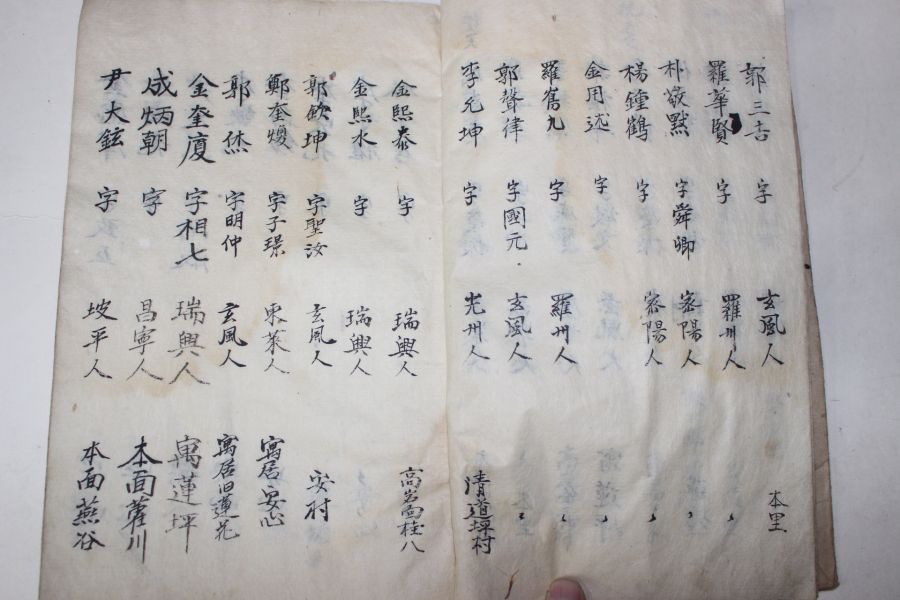 郭三吉 字 玄風人 本里
羅華賢 字 羅州人 〃
朴敬默 字舜卿 密陽人 〃
楊鍾鶴 字 密陽人 〃
金用述 字
羅 九 字 羅州人 〃
郭聲律 字國元 玄風人 〃
李元坤 字 光州人 清道坪村
金熙泰 字 瑞興人 高岩面桂八
金熙水 字 瑞興人
郭欽坤 字聖汝 玄風人 安村
鄭奎 字子璟 東萊人 寓居安心
郭 字明仲 玄風人 寓居旧蓮花
金奎廈 字相七 瑞興人 寓蓮坪
成炳朝 字 昌寧人 本面藿川
尹大鉉 字 坡平人 本面燕谷